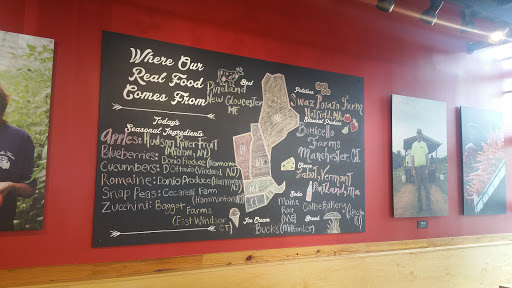 Where Our
Real Food
Comes From
Today's
Seasonal Ingredients
Apples: Hudson River Fruit
(Milton, NY)
Blueberries: Donio Produce (Hammonton,
Cucumbers: D'Ottavio (Vineland,
Romaine: Donio Produce (Hammonton,
Snap Peas: Cecarelli Farm
Zucchini: Baggot Farms
(East Windsor
CT)
Beef
Pineland
New Gloucester
ME
Potatoes
Swaz Potato Farm
Hatfield, MA
Seasonal Produce
Botticello
Farms
Manchester, CT
Cheese
Cabot, Vermont
Soda
Maine
Root
(ME)
Portland, ME
Bread
Ice Cream